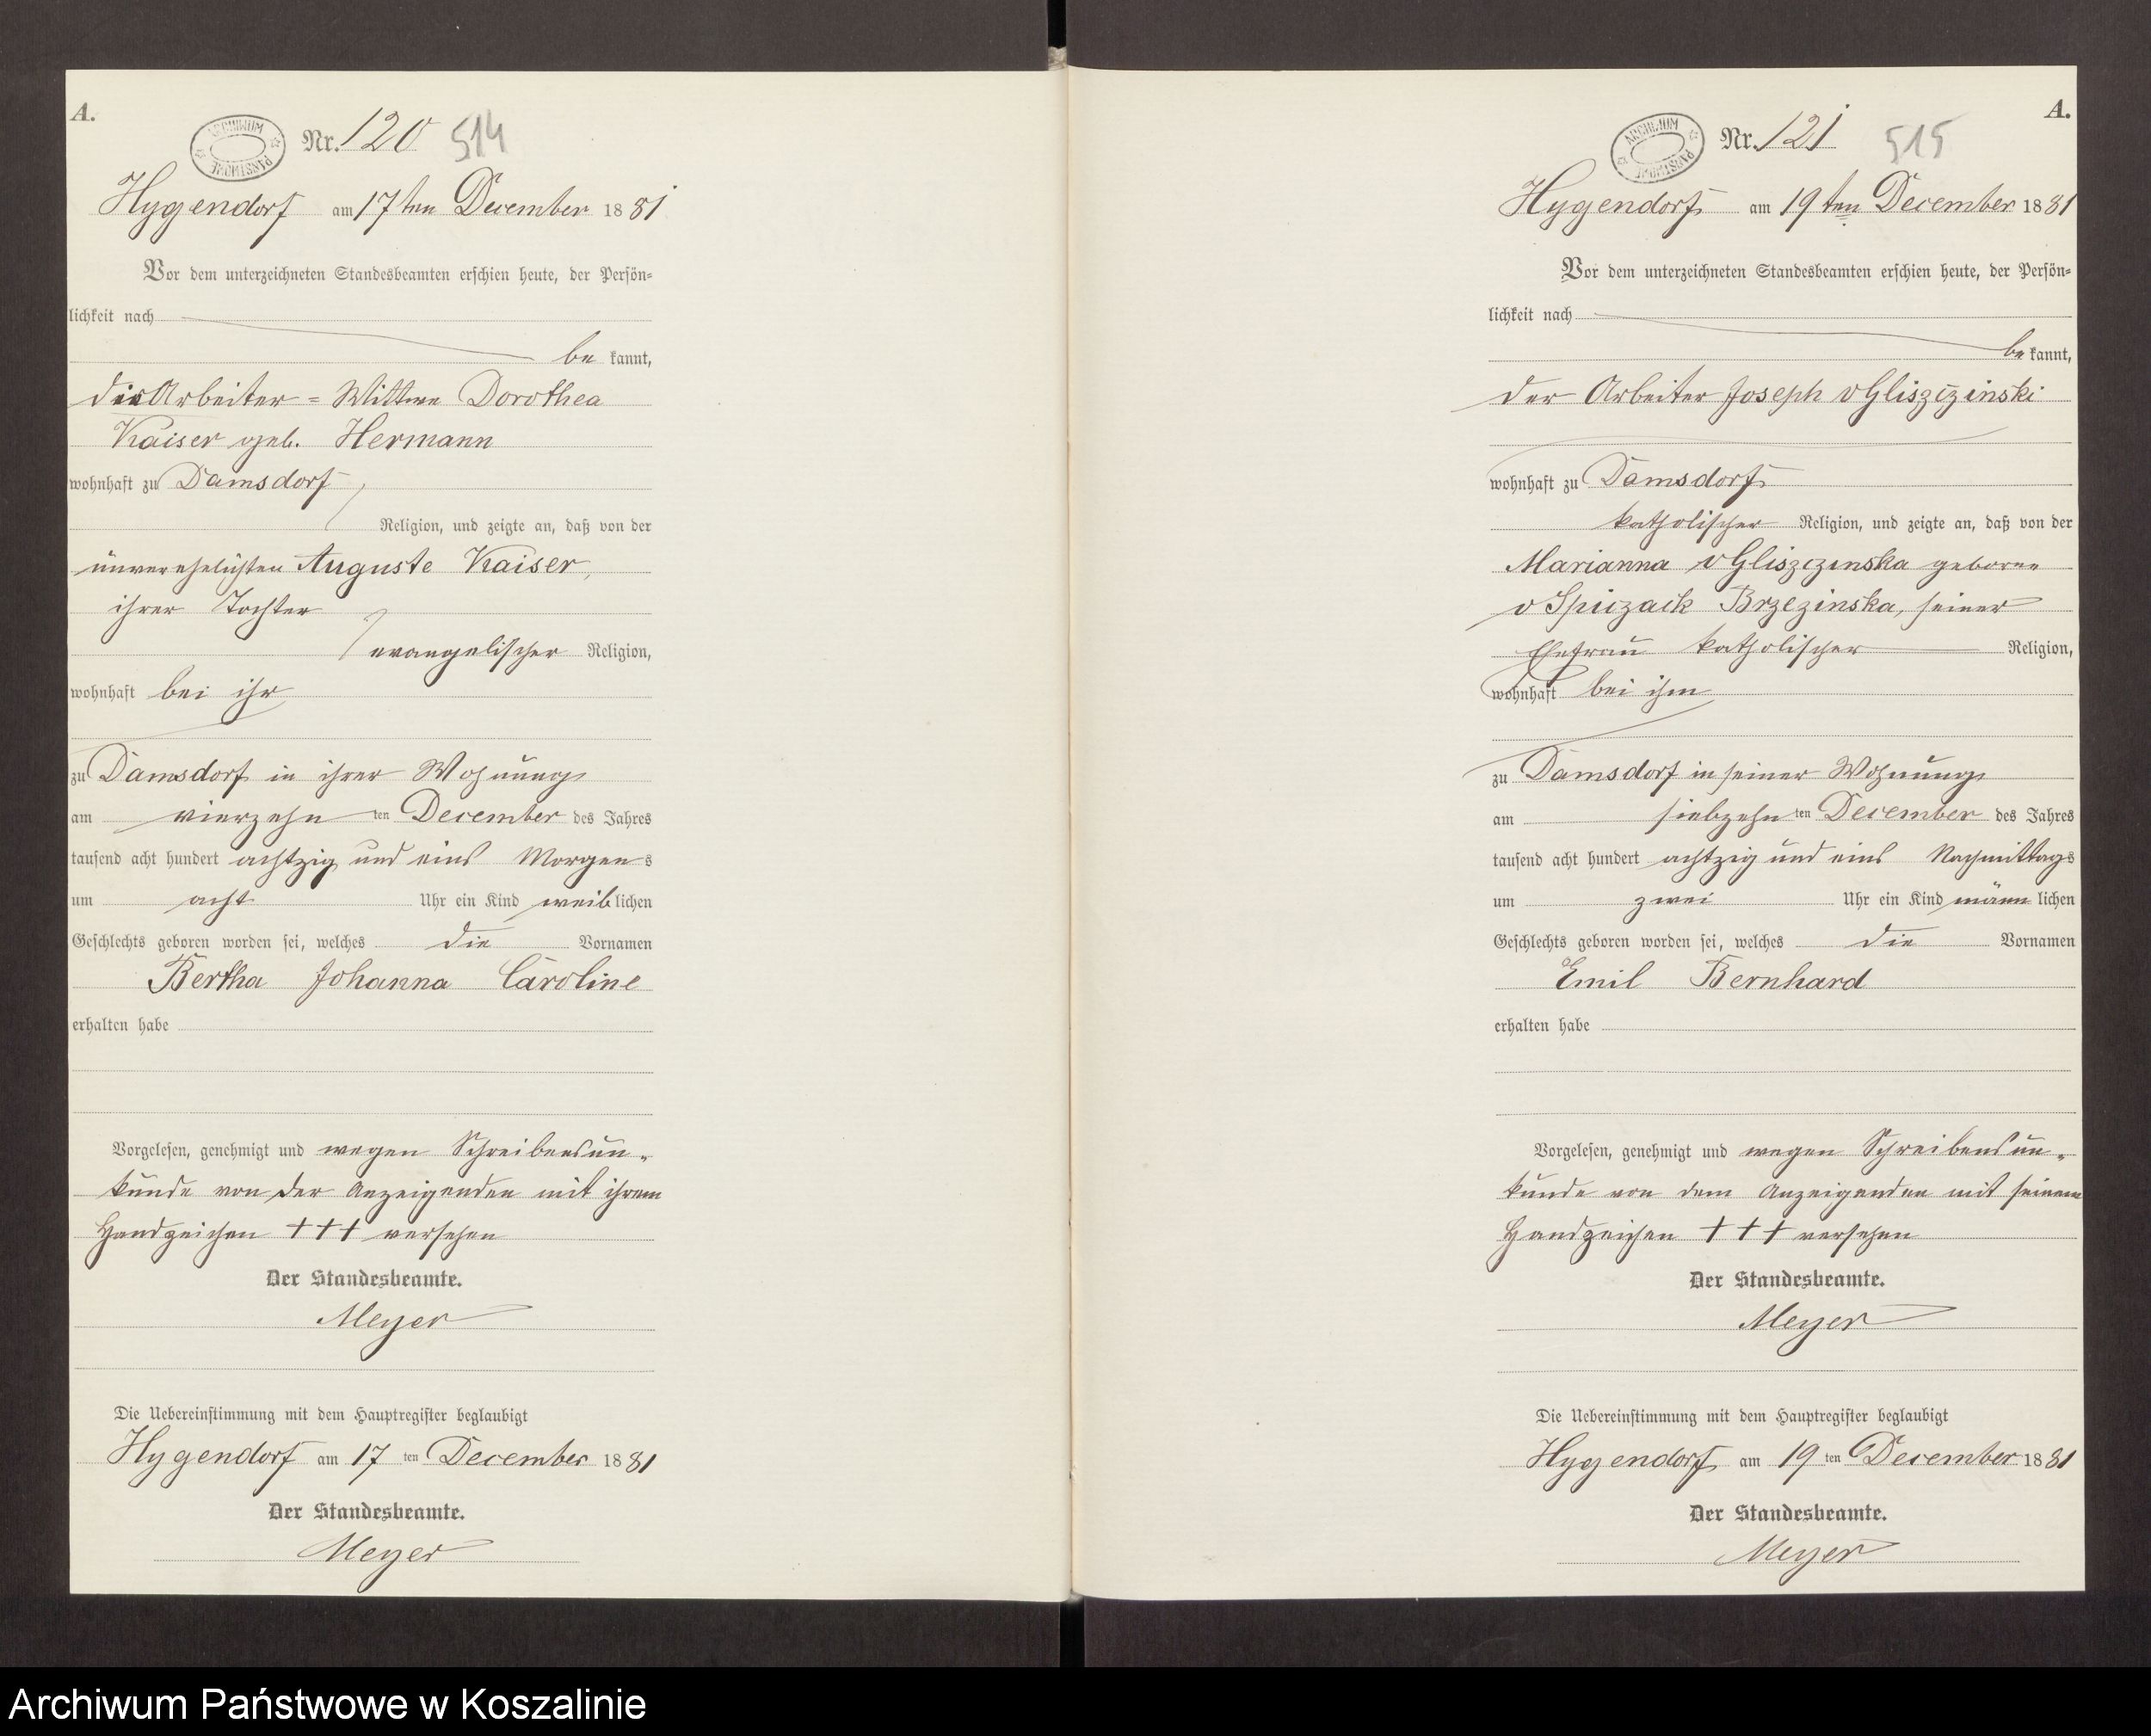 A.
ARCHIWUM PAŃSTWOWE
Nr. 120 514
Hygendorf am 17ten December 1881
Vor dem unterzeichneten Standesbeamten erschien heute, der Persön=
lichkeit nach
be kannt,
die Arbeiter = Wittwe Dorothea
Kaiser geb. Hermann
wohnhaft zu Damsdorf
Religion, und zeigte an, daß von der
unverehelichten Auguste Kaiser,
ihrer Tochter
evangelischer Religion,
wohnhaft bei ihr
zu Damsdorf in ihrer Wohnung
am vierzehn ten December des Jahres
tausend acht hundert achtzig und eins Morgens
um acht Uhr ein Kind weiblichen
Geschlechts geboren worden sei, welches die Vornamen
Bertha Johanna Caroline
erhalten habe
Vorgelesen, genehmigt und wegen Schreibensun-
kunde von der Anzeigenden mit ihrem
Handzeichen +++ versehen
Der Standesbeamte.
Meyer
Die Uebereinstimmung mit dem Hauptregister beglaubigt
Hygendorf am 17 ten December 1881
Der Standesbeamte.
Meyer
A.
ARCHIWUM PAŃSTWOWE
Nr. 121 515
Hygendorf am 19ten December 1881
Vor dem unterzeichneten Standesbeamten erschien heute, der Persön=
lichkeit nach
be kannt,
der Arbeiter Joseph v Gliszczinski
wohnhaft zu Damsdorf
katholischer Religion, und zeigte an, daß von der
Marianna v Gliszczinska geborne
v Spiczack Brzezinska, seiner
Ehefrau katholischer Religion,
wohnhaft bei ihm
zu Damsdorf in seiner Wohnung
am siebzehn ten December des Jahres
tausend acht hundert achtzig und eins Nachmittags
um zwei Uhr ein Kind männlichen
Geschlechts geboren worden sei, welches die Vornamen
Emil Bernhard
erhalten habe
Vorgelesen, genehmigt und wegen Schreibensun-
kunde von dem Anzeigenden mit seinem
Handzeichen +++ versehen
Der Standesbeamte.
Meyer
Die Uebereinstimmung mit dem Hauptregister beglaubigt
Hygendorf am 19 ten December 1881
Der Standesbeamte.
Meyer
Archiwum Państwowe w Koszalinie